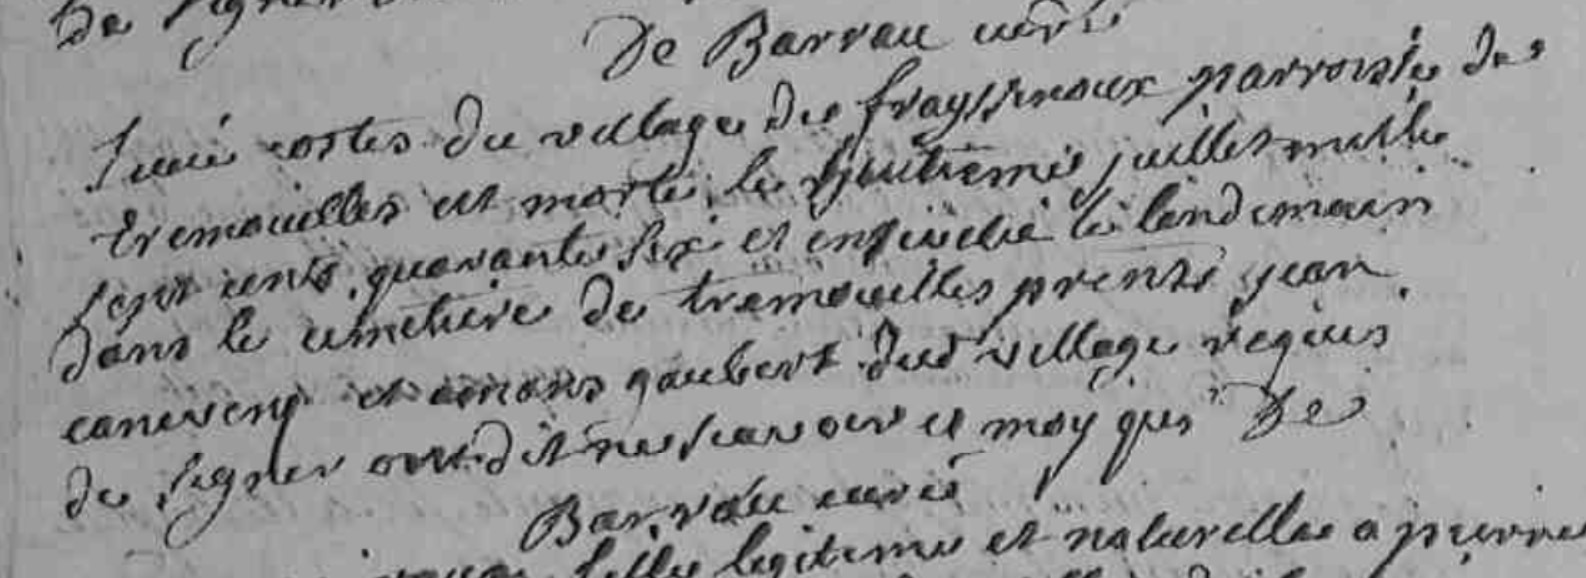 de signer
De Barrau curé
costes du village de frayssinoux parroisse de
tremouilles est morte le huitieme juillet mille
sept cents quarante six et ensevelie le lendemain
dans le cimetiere de tremouilles prents jean
canivenq et amans gaubert dud village requis
de signer ont dit ne scavoir et moy De
Barrau curé
fille legitime et naturelle a pierre